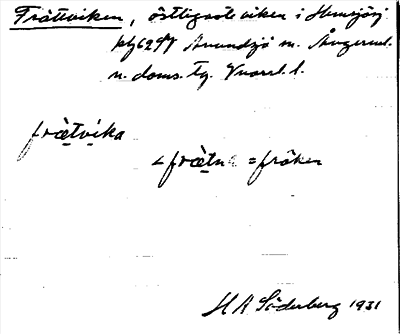 Frättviken, östligaste viken i Hemsjön,
Anundsjö sn. Ångermanl.
n. doms. tg. Vnorrl. l.
fræ̀tvika
< frætna = fräken
H A Söderberg 1931